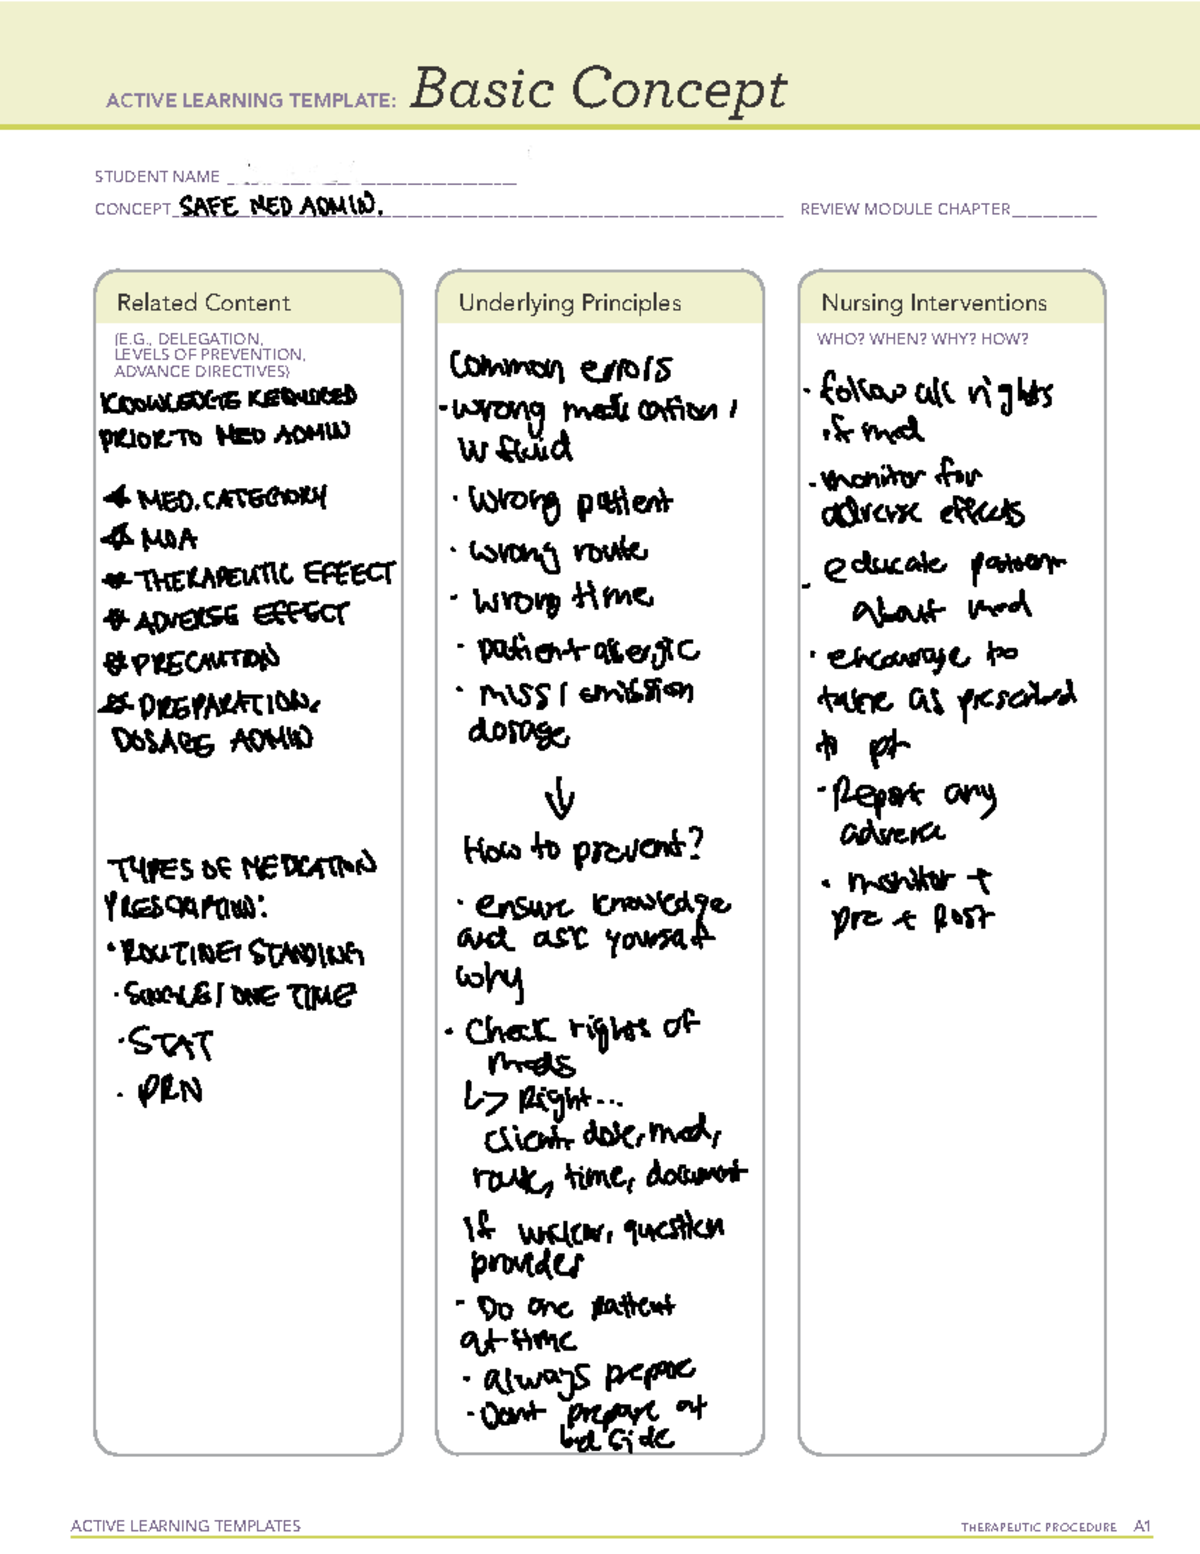 ACTIVE LEARNING TEMPLATE: Basic Concept
STUDENT NAME
CONCEPT SAFE MED ADMIN.
REVIEW MODULE CHAPTER
Related Content
(E.G., DELEGATION,
LEVELS OF PREVENTION,
ADVANCE DIRECTIVES)
KNOWLEDGE REQUIRED
PRIOR TO MED ADMIN
MED. CATEGORY
MOA
THERAPEUTIC EFFECT
ADVERSE EFFECT
PRECAUTION
PREPARATION,
DOSAGE ADMIN
TYPES OF MEDICATION
PRESCRIPTION:
· ROUTINE/ STANDING
· SINGLE / ONE TIME
· STAT
· PRN
Underlying Principles
Common errors
- wrong medication /
IV fluid
· wrong patient
· wrong route
· wrong time
· patient allergic
· miss / omission
dosage
↓
How to prevent?
· ensure knowledge
and ask yourself
why
· Check rights of
meds
↳ Right...
client, dose, med,
route, time, document
If unclear, question
provider
- Do one patient
at time
· always prepare
· Dont prepare at
bed side
Nursing Interventions
WHO? WHEN? WHY? HOW?
· follow all rights
of med
- monitor for
adverse effects
- educate patient
about med
· encourage to
take as prescribed
to pt
· Report any
adverse
· monitor +
pre + Post
ACTIVE LEARNING TEMPLATES
THERAPEUTIC PROCEDURE A1